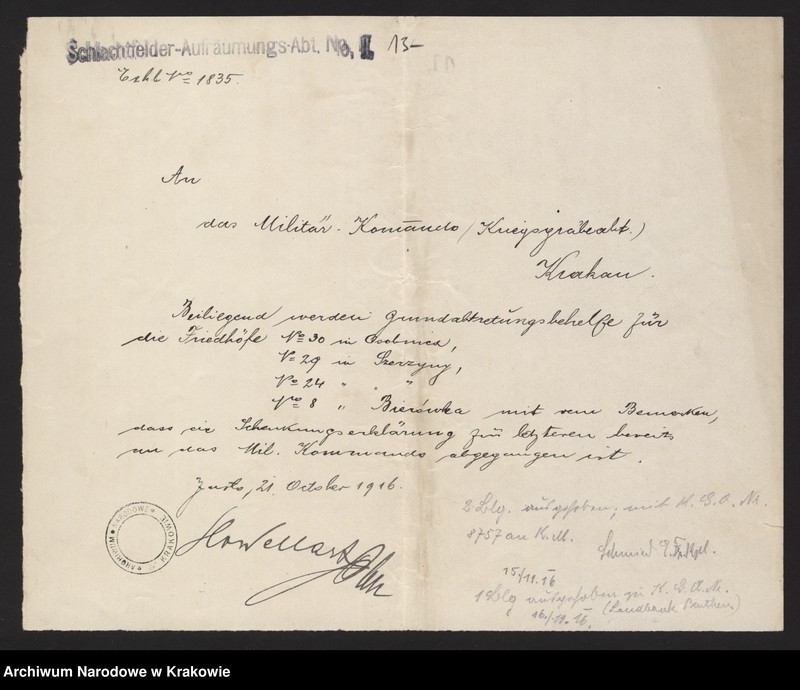 Schlachtfelder-Aufräumungs-Abt. No. II. 13-
Exh. No 1835.
An
das Militär-Komando (Kriegsgräberabt.)
Krakau.
Beiliegend werden Grundabtretungsbehelfe für
die Friedhöfe No 30 in Osobnica,
No 29 in Szerzyny,
No 24 " "
No 8 " Bierówka mit dem Bemerken,
dass die Schenkungserklärung zu letzteren bereits
an das Mil. Kommando abgegangen ist.
Jasło, 21. October 1916.
ARCHIWUM NARODOWE W KRAKOWIE
2 Blg. ausgehoben, mit K. G. A. Nr.
8757 an K. M.
15/11. 16
1 Blg ausgehoben zu K. G. A. N.
16./11. 16.
Archiwum Narodowe w Krakowie